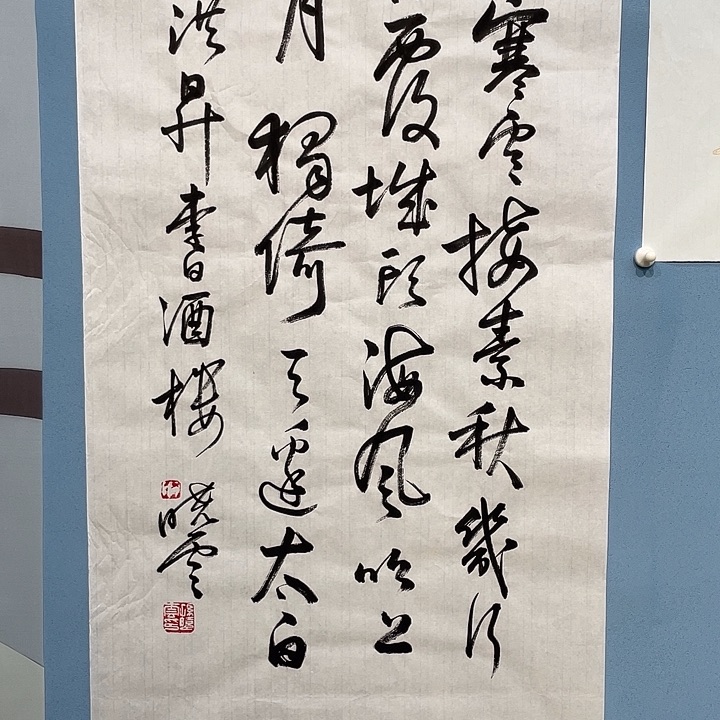 寒雲接素秋幾行
覆城頭海風吹上
月獨倚天邊太白
洪昇李白酒樓曉雲